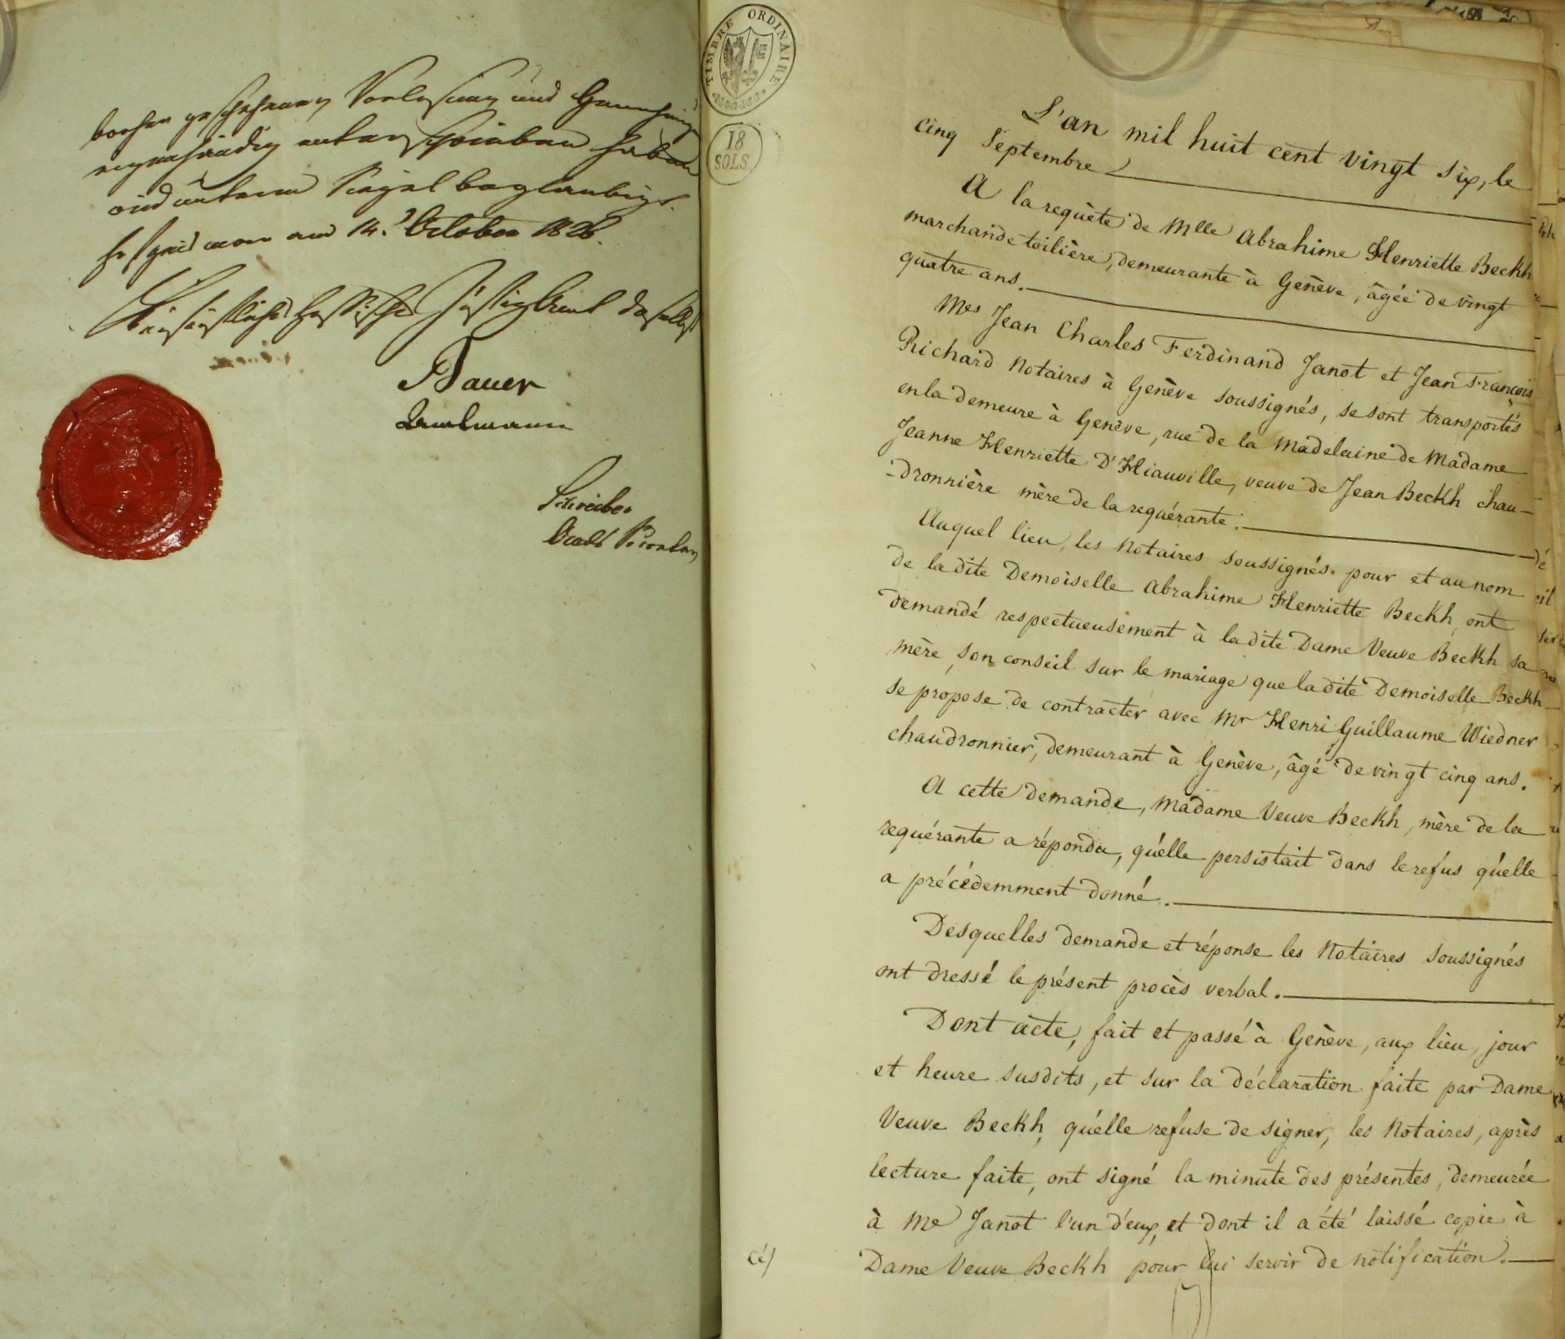 Vorlesung und Genehmigung
eigenhändig unterschrieben haben
und unterm Siegel beglaubigt.
am 14.t October 1826.
Kurfürstlich Hessisches Justiz Amt daselbst
Bauer
Schreiber
Stadt
TIMBRE ORDINAIRE
18
SOLS
L'an mil huit cent vingt six, le
cinq Septembre
A la requête de Mlle Abrahime Henriette Beckh
marchande toilière, demeurante à Genève, âgée de vingt
quatre ans.
Mes Jean Charles Ferdinand Janot et Jean François
Richard Notaires à Genève soussignés, se sont transportés
en la demeure à Genève, rue de la Madelaine de Madame
Jeanne Henriette D'Hiauville, veuve de Jean Beckh chau-
-dronnière mère de la requérante.
Auquel lieu, les Notaires soussignés pour et au nom
de la dite Demoiselle Abrahime Henriette Beckh, ont
demandé respectueusement à la dite Dame Veuve Beckh sa
mère, son conseil sur le mariage que la dite Demoiselle Beckh
se propose de contracter avec Mr Henri Guillaume Wiedner
chaudronnier, demeurant à Genève, âgé de vingt cinq ans.
A cette demande, Madame Veuve Beckh, mère de la
requérante a répondu, qu'elle persistait dans le refus qu'elle
a précédemment donné.
Desquelles demande et réponse les Notaires soussignés
ont dressé le présent procès verbal.
Dont acte, fait et passé à Genève, aux lieu, jour
et heure susdits, et sur la déclaration faite par Dame
Veuve Beckh, qu'elle refuse de signer, les Notaires, après
lecture faite, ont signé la minute des présentes, demeurée
à Me Janot l'un d'eux, et dont il a été laissé copie à
Dame Veuve Beckh pour lui servir de notification.